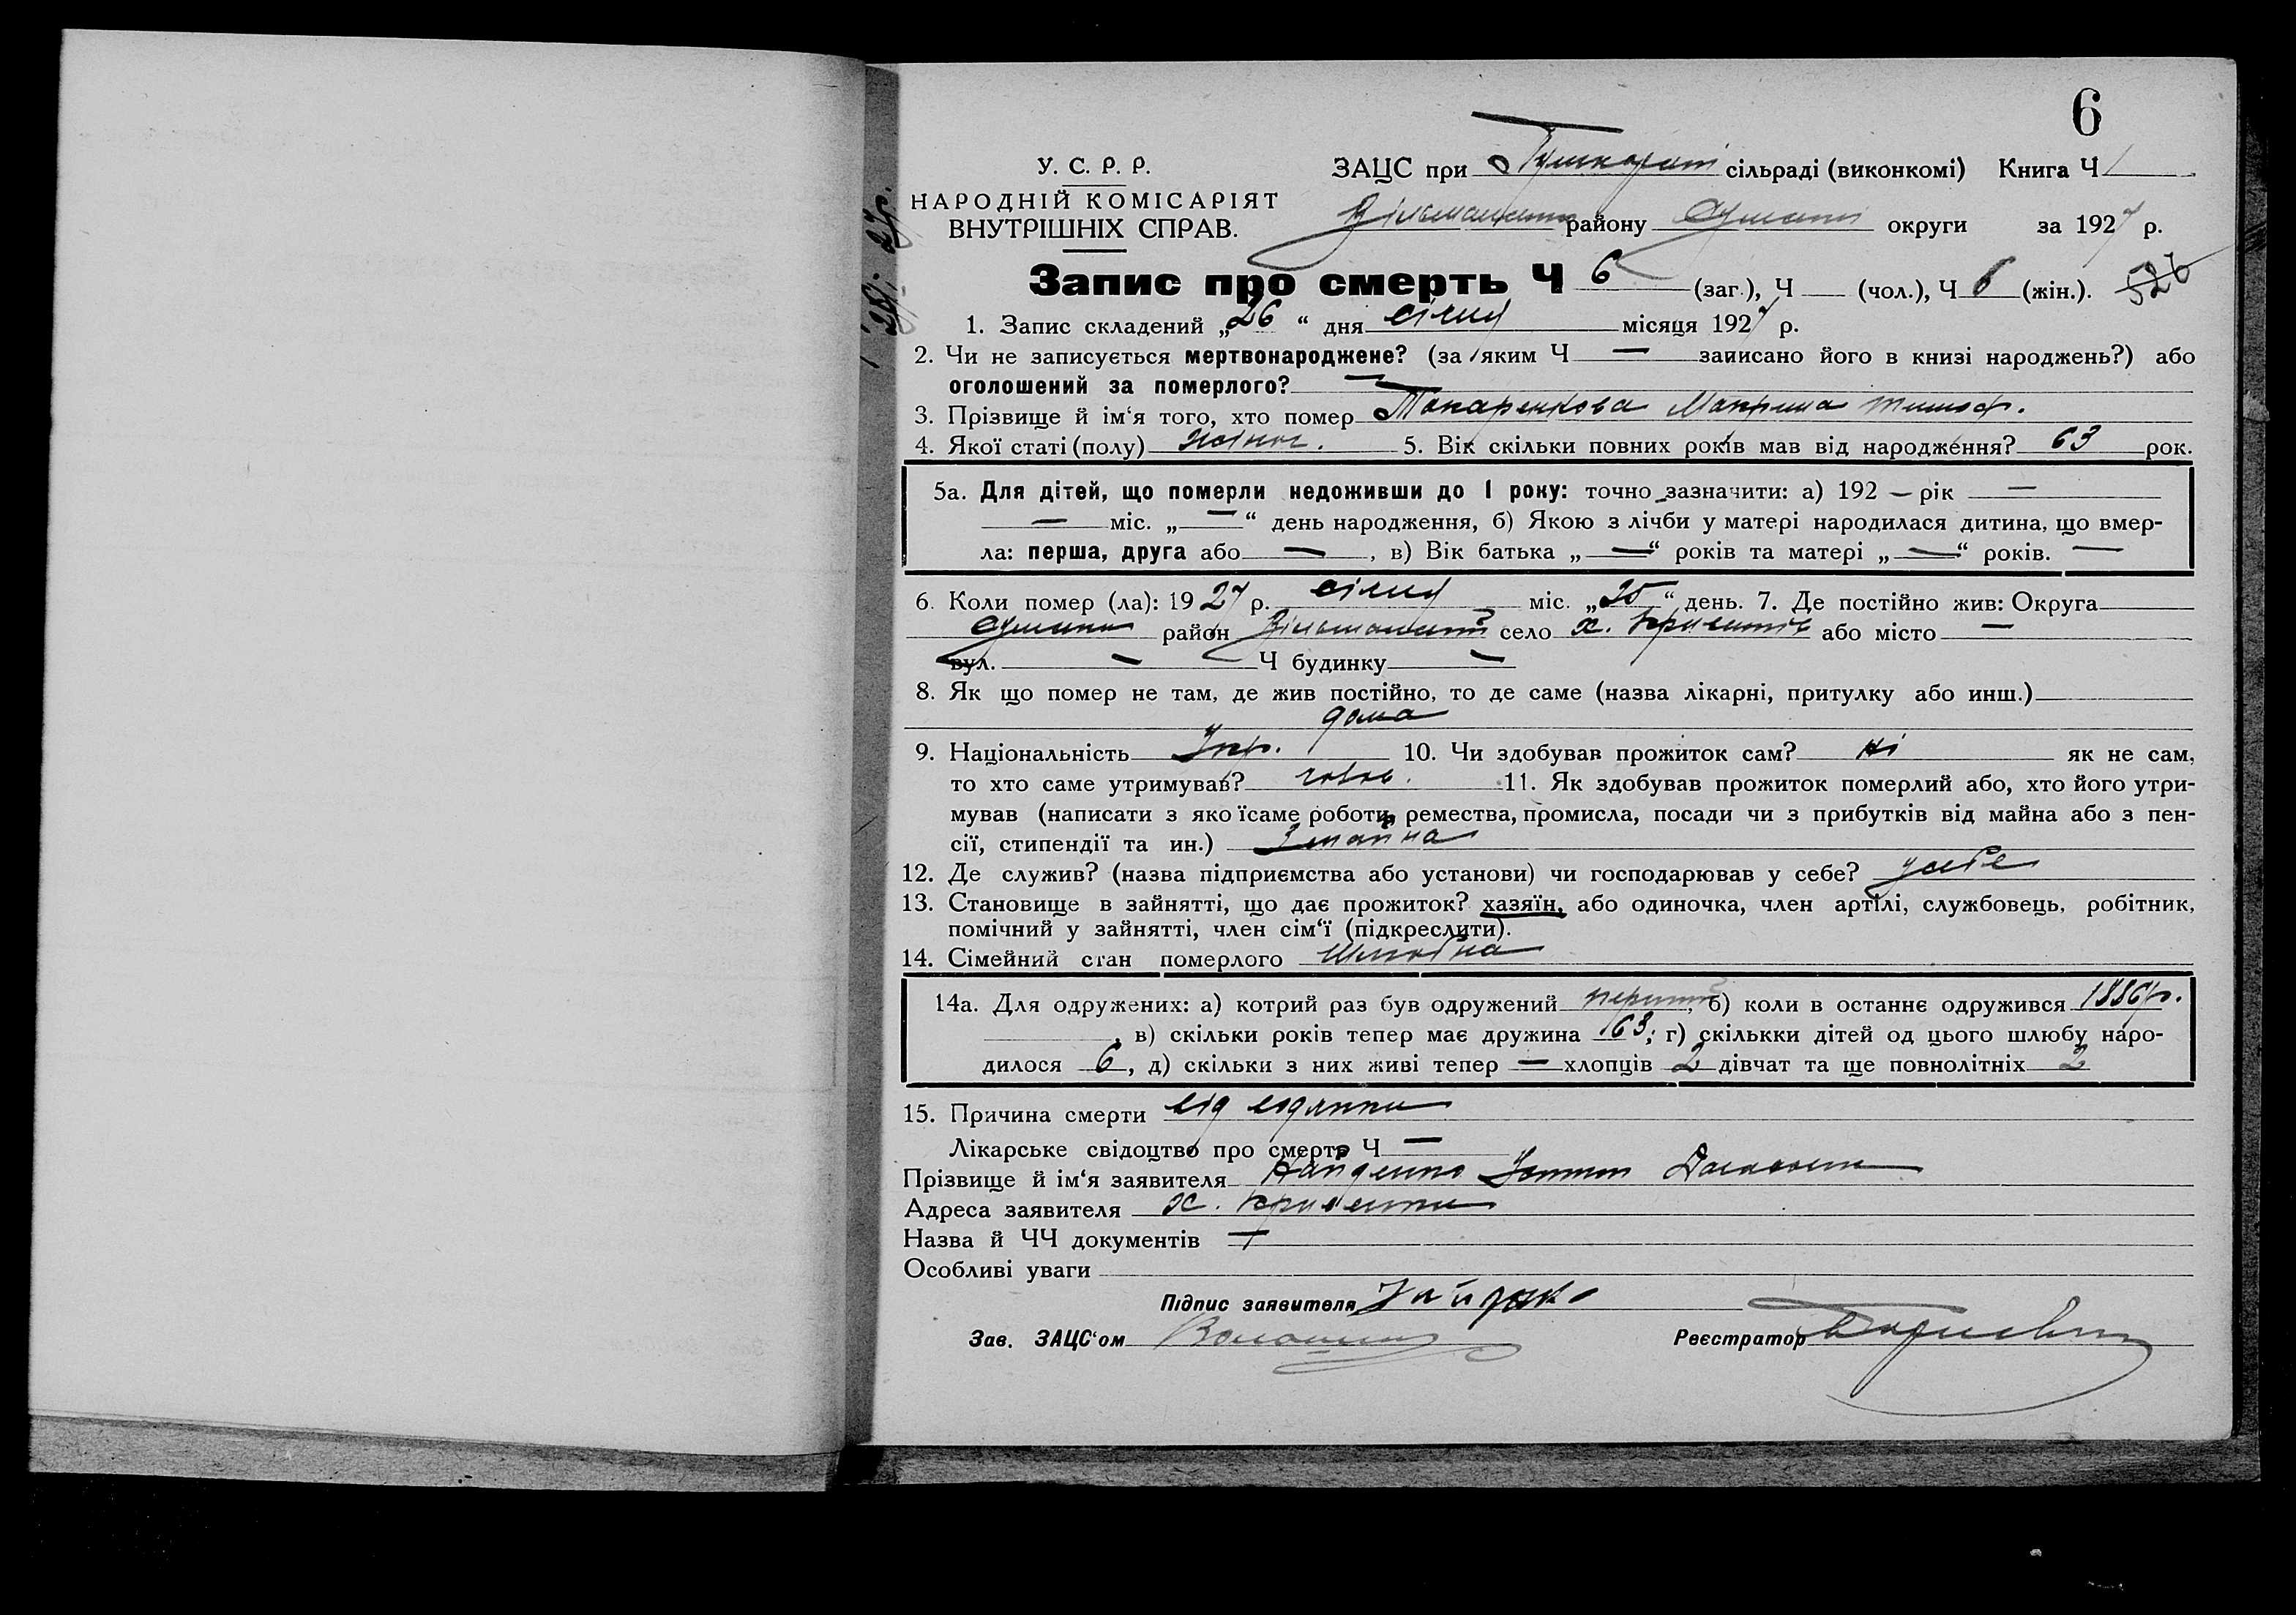 6
У. С. Р. Р.
НАРОДНІЙ КОМІСАРІЯТ
ВНУТРІШНІХ СПРАВ.
ЗАЦС при сільраді (виконкомі) Книга Ч 1
району округи за 1927 р.
Запис про смерть Ч 6 (заг.), Ч (чол.), Ч 6 (жін.). 526
1. Запис складений „26“ дня січня місяця 1927 р.
2. Чи не записується мертвонароджене? (за яким Ч — записано його в книзі народжень?) або
оголошений за померлого? —
3. Прізвище й ім‘я того, хто помер Токаренкова Макрина Тимоф.
4. Якої статі (полу) жіноч. 5. Вік скільки повних років мав від народження? 63 рок.
5а. Для дітей, що померли недоживши до 1 року: точно зазначити: а) 192 — рік —
— міс. „—“ день народження, б) Якою з лічби у матері народилася дитина, що вмер-
ла: перша, друга або —, в) Вік батька „—“ років та матері „—“ років. —
6. Коли помер (ла): 1927 р. січня міс. „25“ день. 7. Де постійно жив: Округа
район село х. або місто —
вул. — Ч будинку —
8. Як що помер не там, де жив постійно, то де саме (назва лікарні, притулку або инш.)
дома
9. Національність Укр. 10. Чи здобував прожиток сам? ні як не сам,
то хто саме утримував? чолов. 11. Як здобував прожиток померлий або, хто його утри-
мував (написати з яко їсаме роботи, ремества, промисла, посади чи з прибутків від майна або з пен-
сії, стипендії та ин.) З майна
12. Де служив? (назва підприємства або установи) чи господарював у себе? у себе
13. Становище в зайнятті, що дає прожиток? хазяїн, або одиночка, член артілі, службовець, робітник,
помічний у зайнятті, член сім‘ї (підкреслити).
14. Сімейний стан померлого Шлюбна
14а. Для одружених: а) котрий раз був одружений перший, б) коли в останнє одружився 1886 р.
, в) скільки років тепер має дружина 63; г) скількки дітей од цього шлюбу наро-
дилося 6, д) скільки з них живі тепер — хлопців 2 дівчат та ще повнолітніх 2
15. Причина смерти від водянки
Лікарське свідоцтво про смерть Ч —
Прізвище й ім‘я заявителя Найденко
Адреса заявителя х.
Назва й ЧЧ документів —
Особливі уваги
Підпис заявителя
Зав. ЗАЦС‘ом
Реєстратор